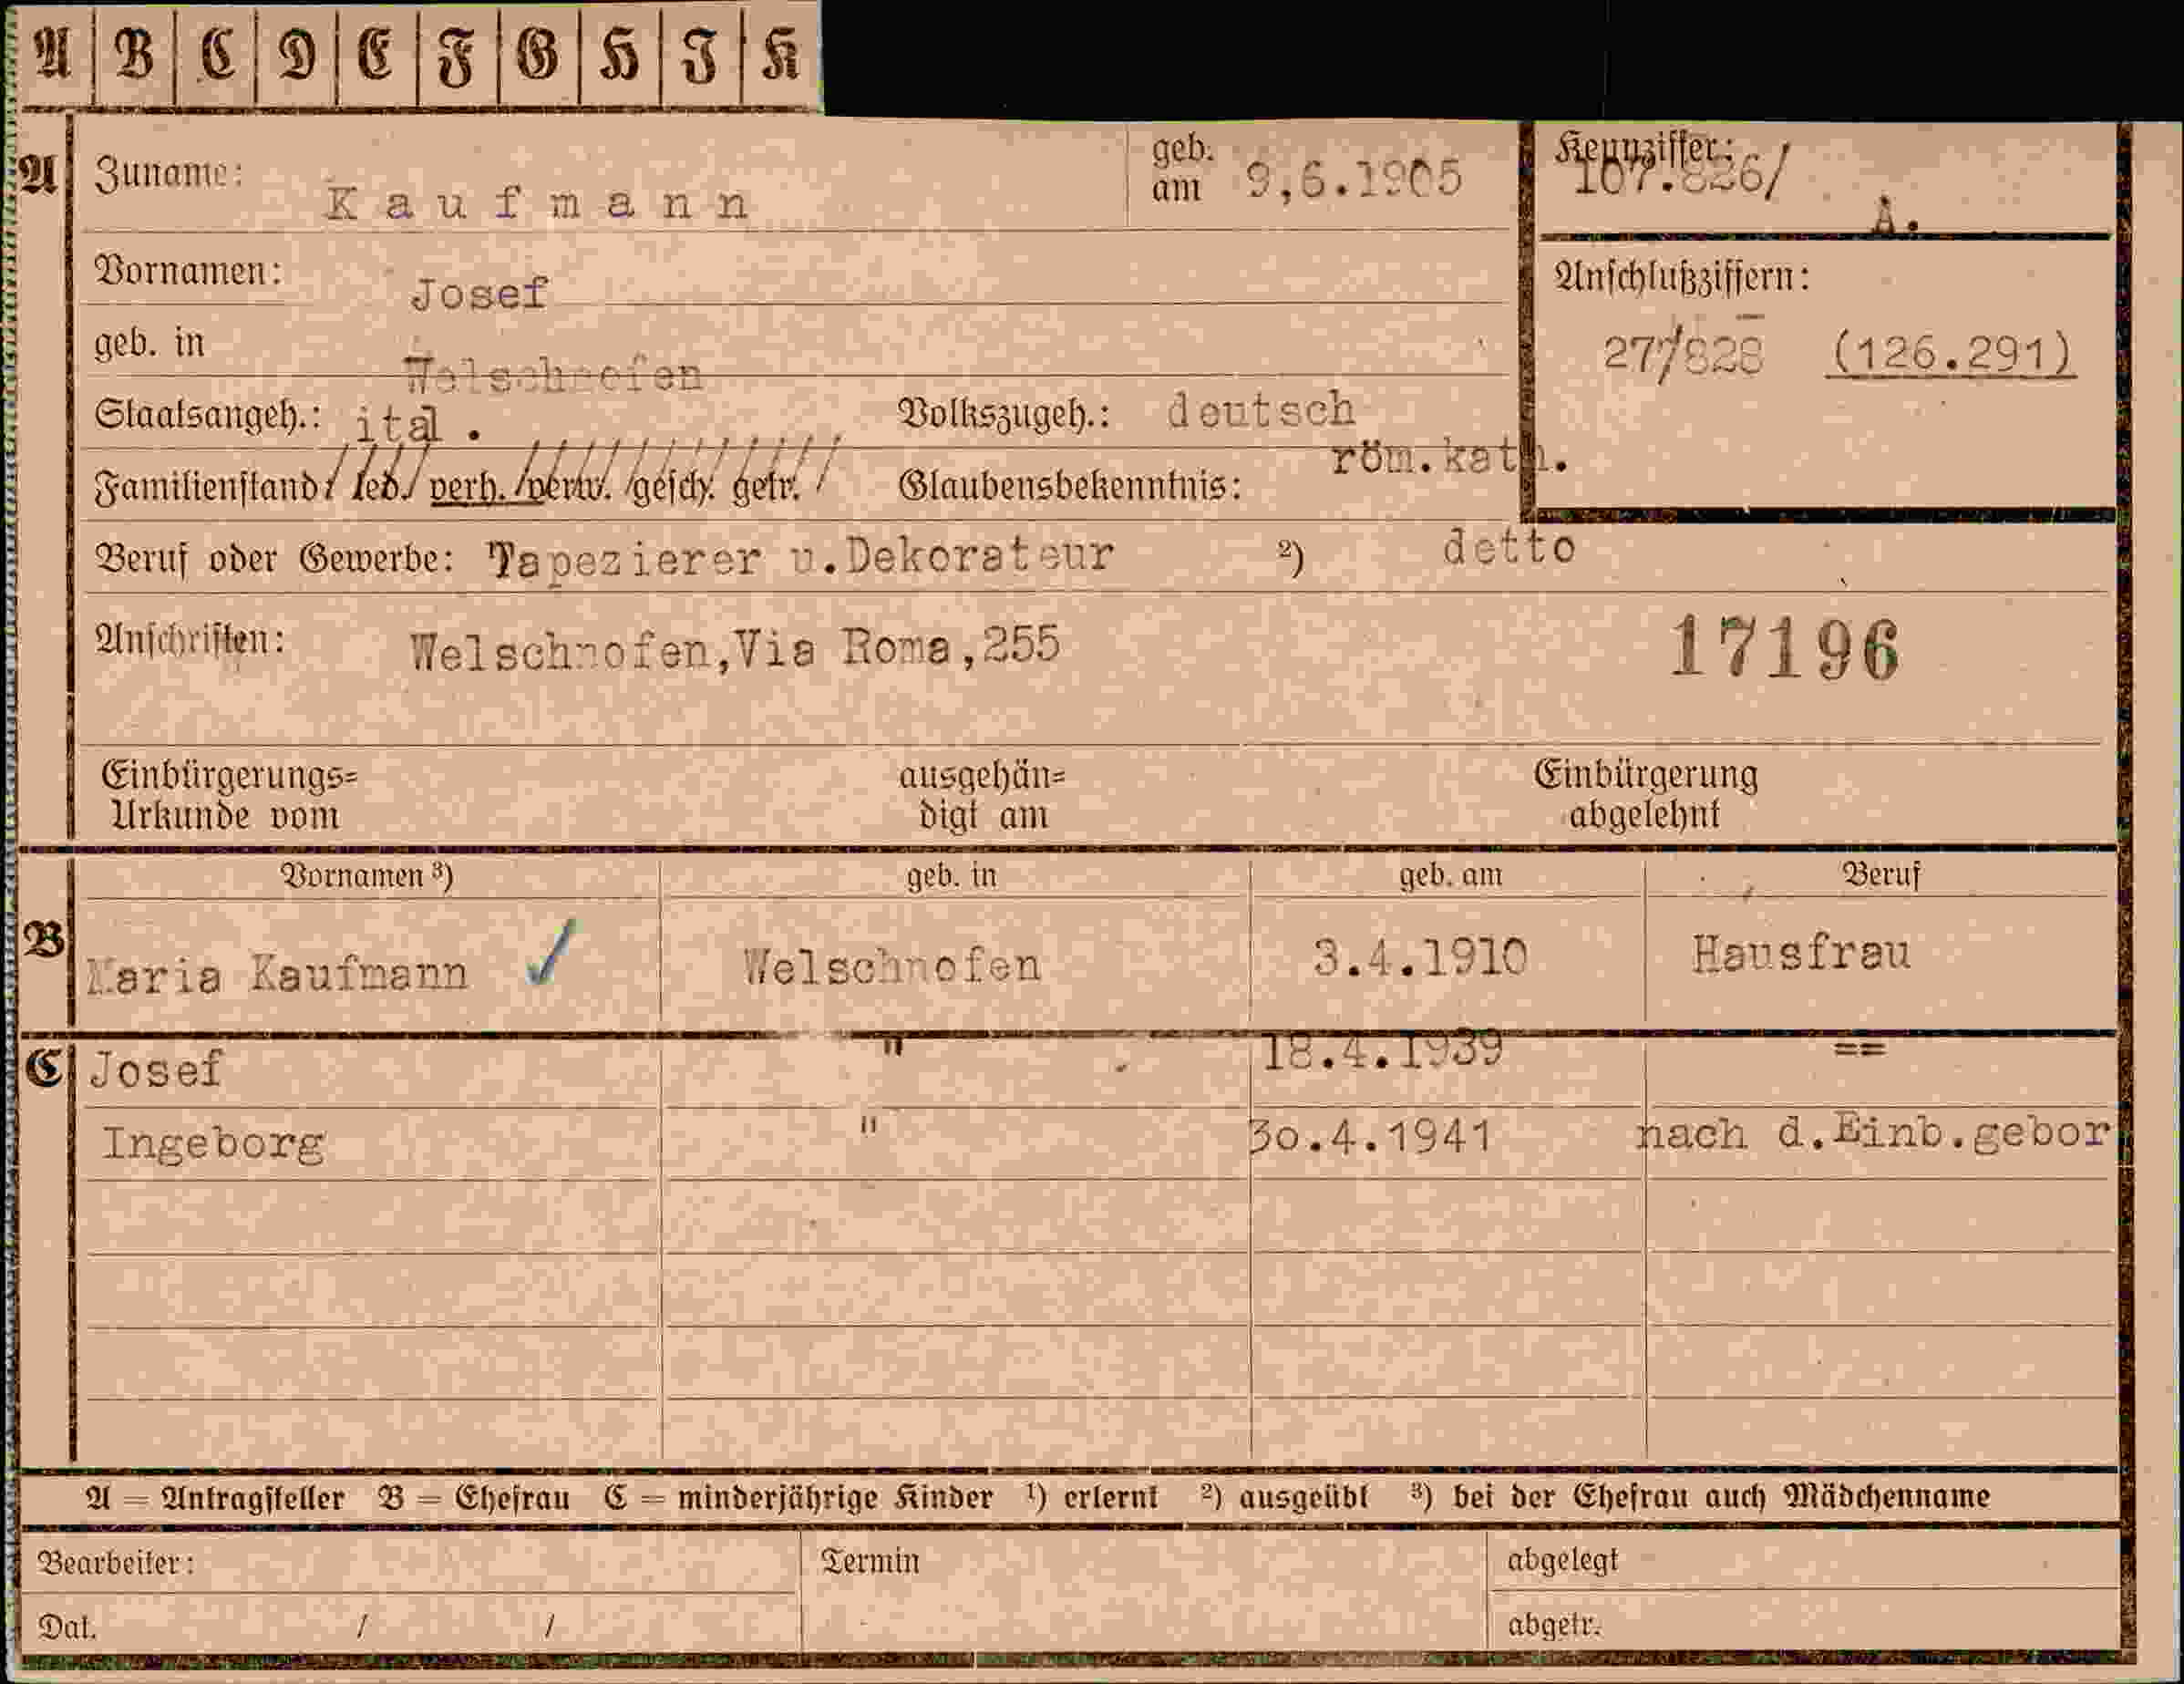 A B C D E F G H I K
A Zuname: Kaufmann geb. am 9,6.1905 Kennziffer: 107.826/ A.
Vornamen: Josef Anschlußziffern:
geb. in Welschnofen 27/828 (126.291)
Staatsangeh.: ital. Volkszugeh.: deutsch
Familienstand: led. verh. verw. gesch. getr. Glaubensbekenntnis: röm.kath.
Beruf oder Gewerbe: Tapezierer u.Dekorateur ²) detto
Anschriften: Welschnofen,Via Roma,255 17196
Einbürgerungs= ausgehän= Einbürgerung
Urkunde vom digt am abgelehnt
Vornamen ³) geb. in geb. am Beruf
B Maria Kaufmann Welschnofen 3.4.1910 Hausfrau
C Josef " 18.4.1939 ==
Ingeborg " 30.4.1941 nach d.Einb.gebor
A = Antragsteller B = Ehefrau C = minderjährige Kinder ¹) erlernt ²) ausgeübt ³) bei der Ehefrau auch Mädchenname
Bearbeiter: Termin abgelegt
Dat. / / abgetr.